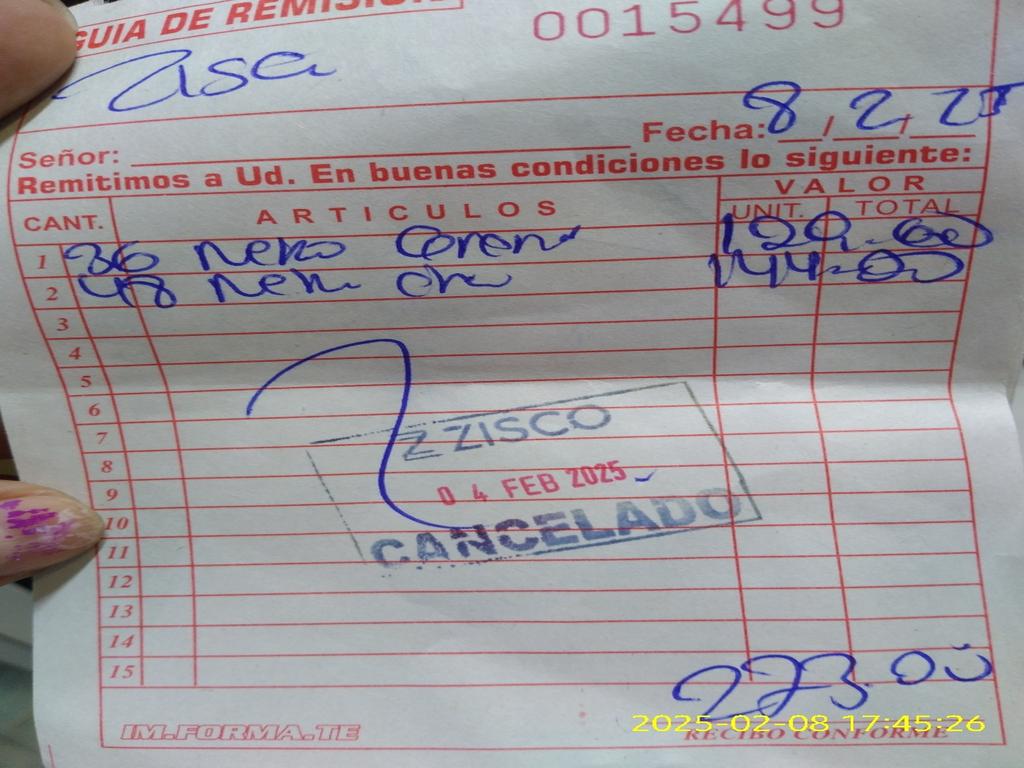 GUIA DE REMISIÓN
0015499
Fecha: 8 / 2 / 25
Señor:
Remitimos a Ud. En buenas condiciones lo siguiente:
CANT. ARTICULOS VALOR
UNIT. TOTAL
1 36 Neko 129.00
2 48 Neko 144.00
3
4
5
6
7
8
9
10
11
12
13
14
15
Z ZISCO
04 FEB 2025
CANCELADO
273.00
IM.FORMA.TE
RECIBO CONFORME
2025-02-08 17:45:26